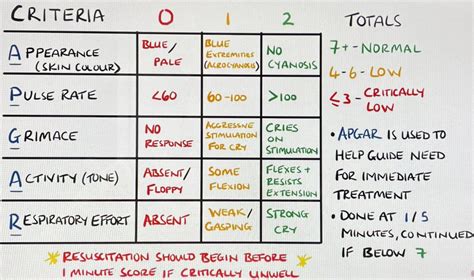 CRITERIA 0 1 2 TOTALS
APPEARANCE (SKIN COLOUR)
BLUE/ PALE
BLUE EXTREMITIES (ACROCYANOSIS)
NO CYANOSIS
PULSE RATE
<60
60-100
>100
GRIMACE
NO RESPONSE
AGGRESSIVE STIMULATION FOR CRY
CRIES ON STIMULATION
ACTIVITY (TONE)
ABSENT/ FLOPPY
SOME FLEXION
FLEXES + RESISTS EXTENSION
RESPIRATORY EFFORT
ABSENT
WEAK/ GASPING
STRONG CRY
7+ - NORMAL
4-6 - LOW
≤3 - CRITICALLY LOW
• APGAR IS USED TO
HELP GUIDE NEED
FOR IMMEDIATE
TREATMENT
• DONE AT 1/5
MINUTES, CONTINUED
IF BELOW 7
RESUSCITATION SHOULD BEGIN BEFORE
1 MINUTE SCORE IF CRITICALLY UNWELL